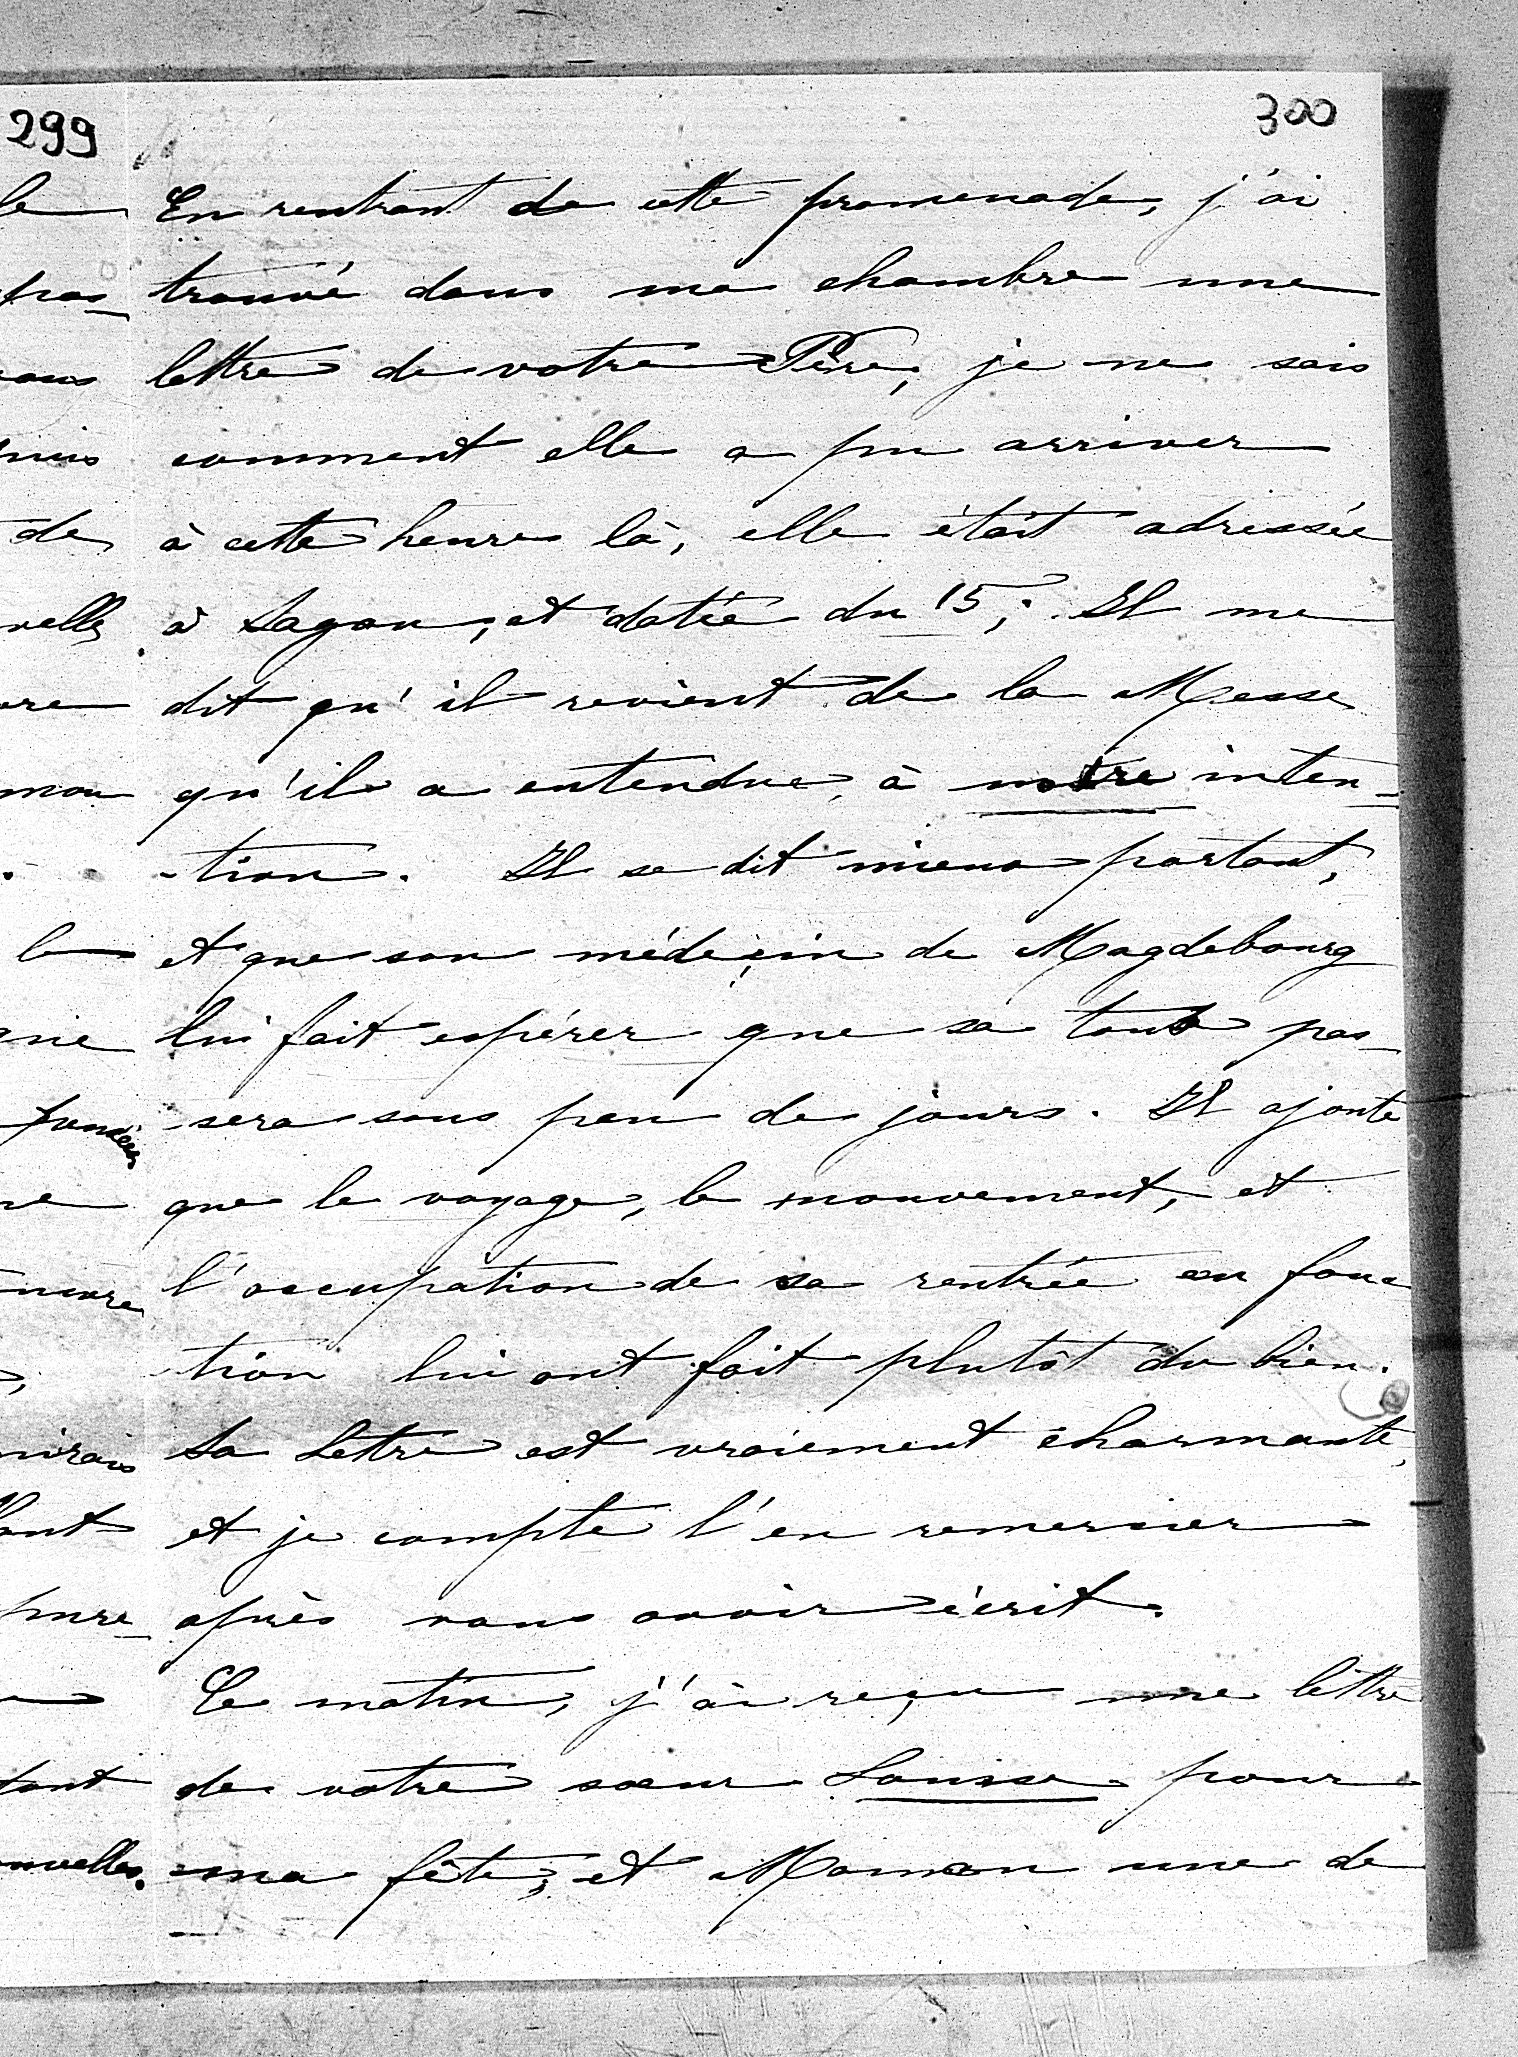 299
300
En rentrant de cette promenade, j'ai
trouvé dans ma chambre une
lettre de votre Père, je ne sais
comment elle a pu arriver
à cette heure là, elle était adressée
à Sagan, et datée du 15; Il me
dit qu'il revient de la Messe
qu'il a entendue, à notre inten-
-tion. Il se dit mieux portant,
et que son médecin de Magdebourg
lui fait espérer que sa toux pas-
sera sous peu de jours. Il ajoute
que le voyage, le mouvement, et
l'occupation de sa rentrée en fonc
tion lui ont fait plutôt du bien.
Sa lettre est vraiment charmante,
et je compte l'en remercier
après vous avoir écrit.
Ce matin, j'ai reçu une lettre
de votre soeur Louise pour
ma fête, et Maman une de